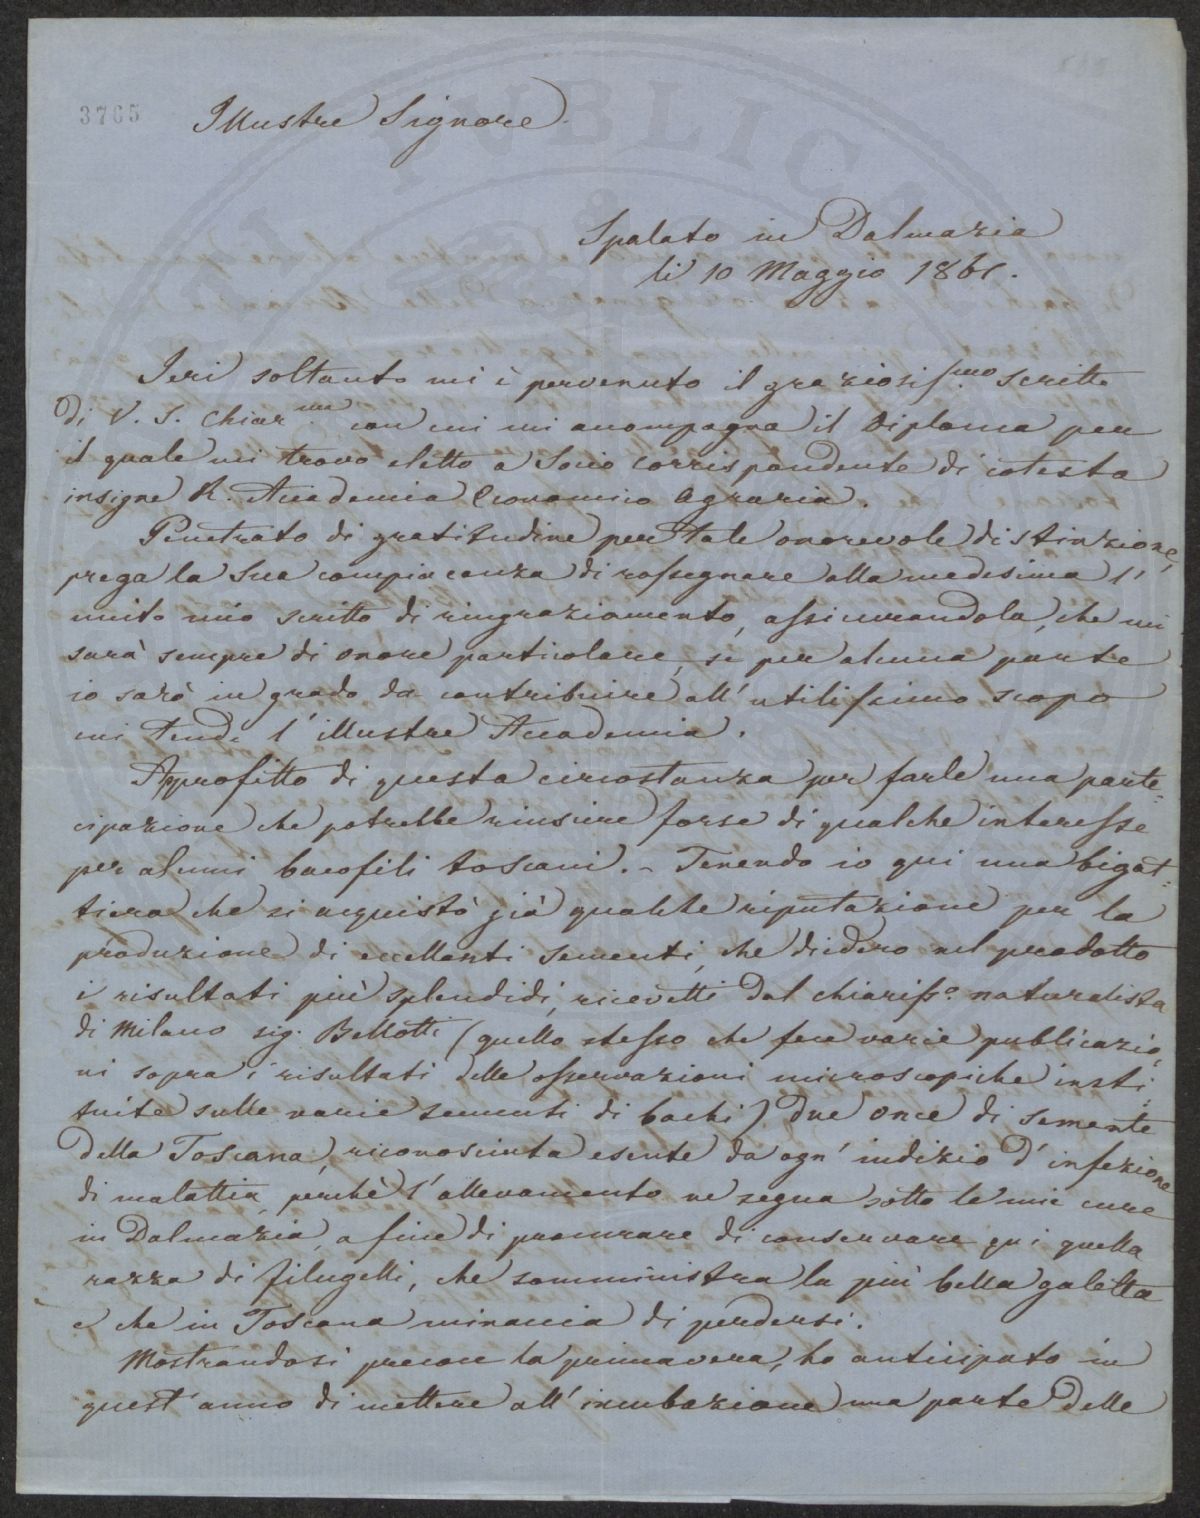 3765
Illustre Signore
Spalato in Dalmazia
li 10 Maggio 1861.
Ieri soltanto mi è pervenuto il graziosiss.mo scritto
di V. S. Chiar.ma con cui mi accompagna il Diploma per
il quale mi trovo eletto a Socio corrispondente di cotesta
insigne R. Accademia Economico Agraria.
Penetrato di gratitudine per tale onorevole distinzione,
prego la Sua compiacenza di rassegnare alla medesima l'
unito mio scritto di ringraziamento, assicurandola, che mi
sarà sempre di onore particolare, se per alcuna parte
io sarò in grado da contribuire all' utilissimo scopo
cui tende l' illustre Accademia.
Approfitto di questa circostanza per farle una parte-
cipazione che potrebbe riuscire forse di qualche interesse
per alcuni bacofili toscani. - Tenendo io qui una bigat-
tiera che si acquistò già qualche riputazione per la
produzione di eccellenti sementi, che diedero nel prodotto
i risultati più splendidi, ricevetti dal chiariss.o naturalista
di Milano sig. Bellotti (quello stesso che fece varie publicazio-
ni sopra i risultati delle osservazioni microscopiche insti-
tuite sulle varie sementi di bachi) due once di semente
della Toscana, riconosciuta esente da ogn' indizio d' infezione
di malattia, perchè l' allevamento ne segua sotto le mie cure
in Dalmazia, a fine di procurare di conservare qui quella
razza di filugelli, che somministra la più bella galetta
e che in Toscana minaccia di perdersi.
Mostrandosi precoce la primavera, ho anticipato in
quest' anno di mettere all' incubazione una parte delle